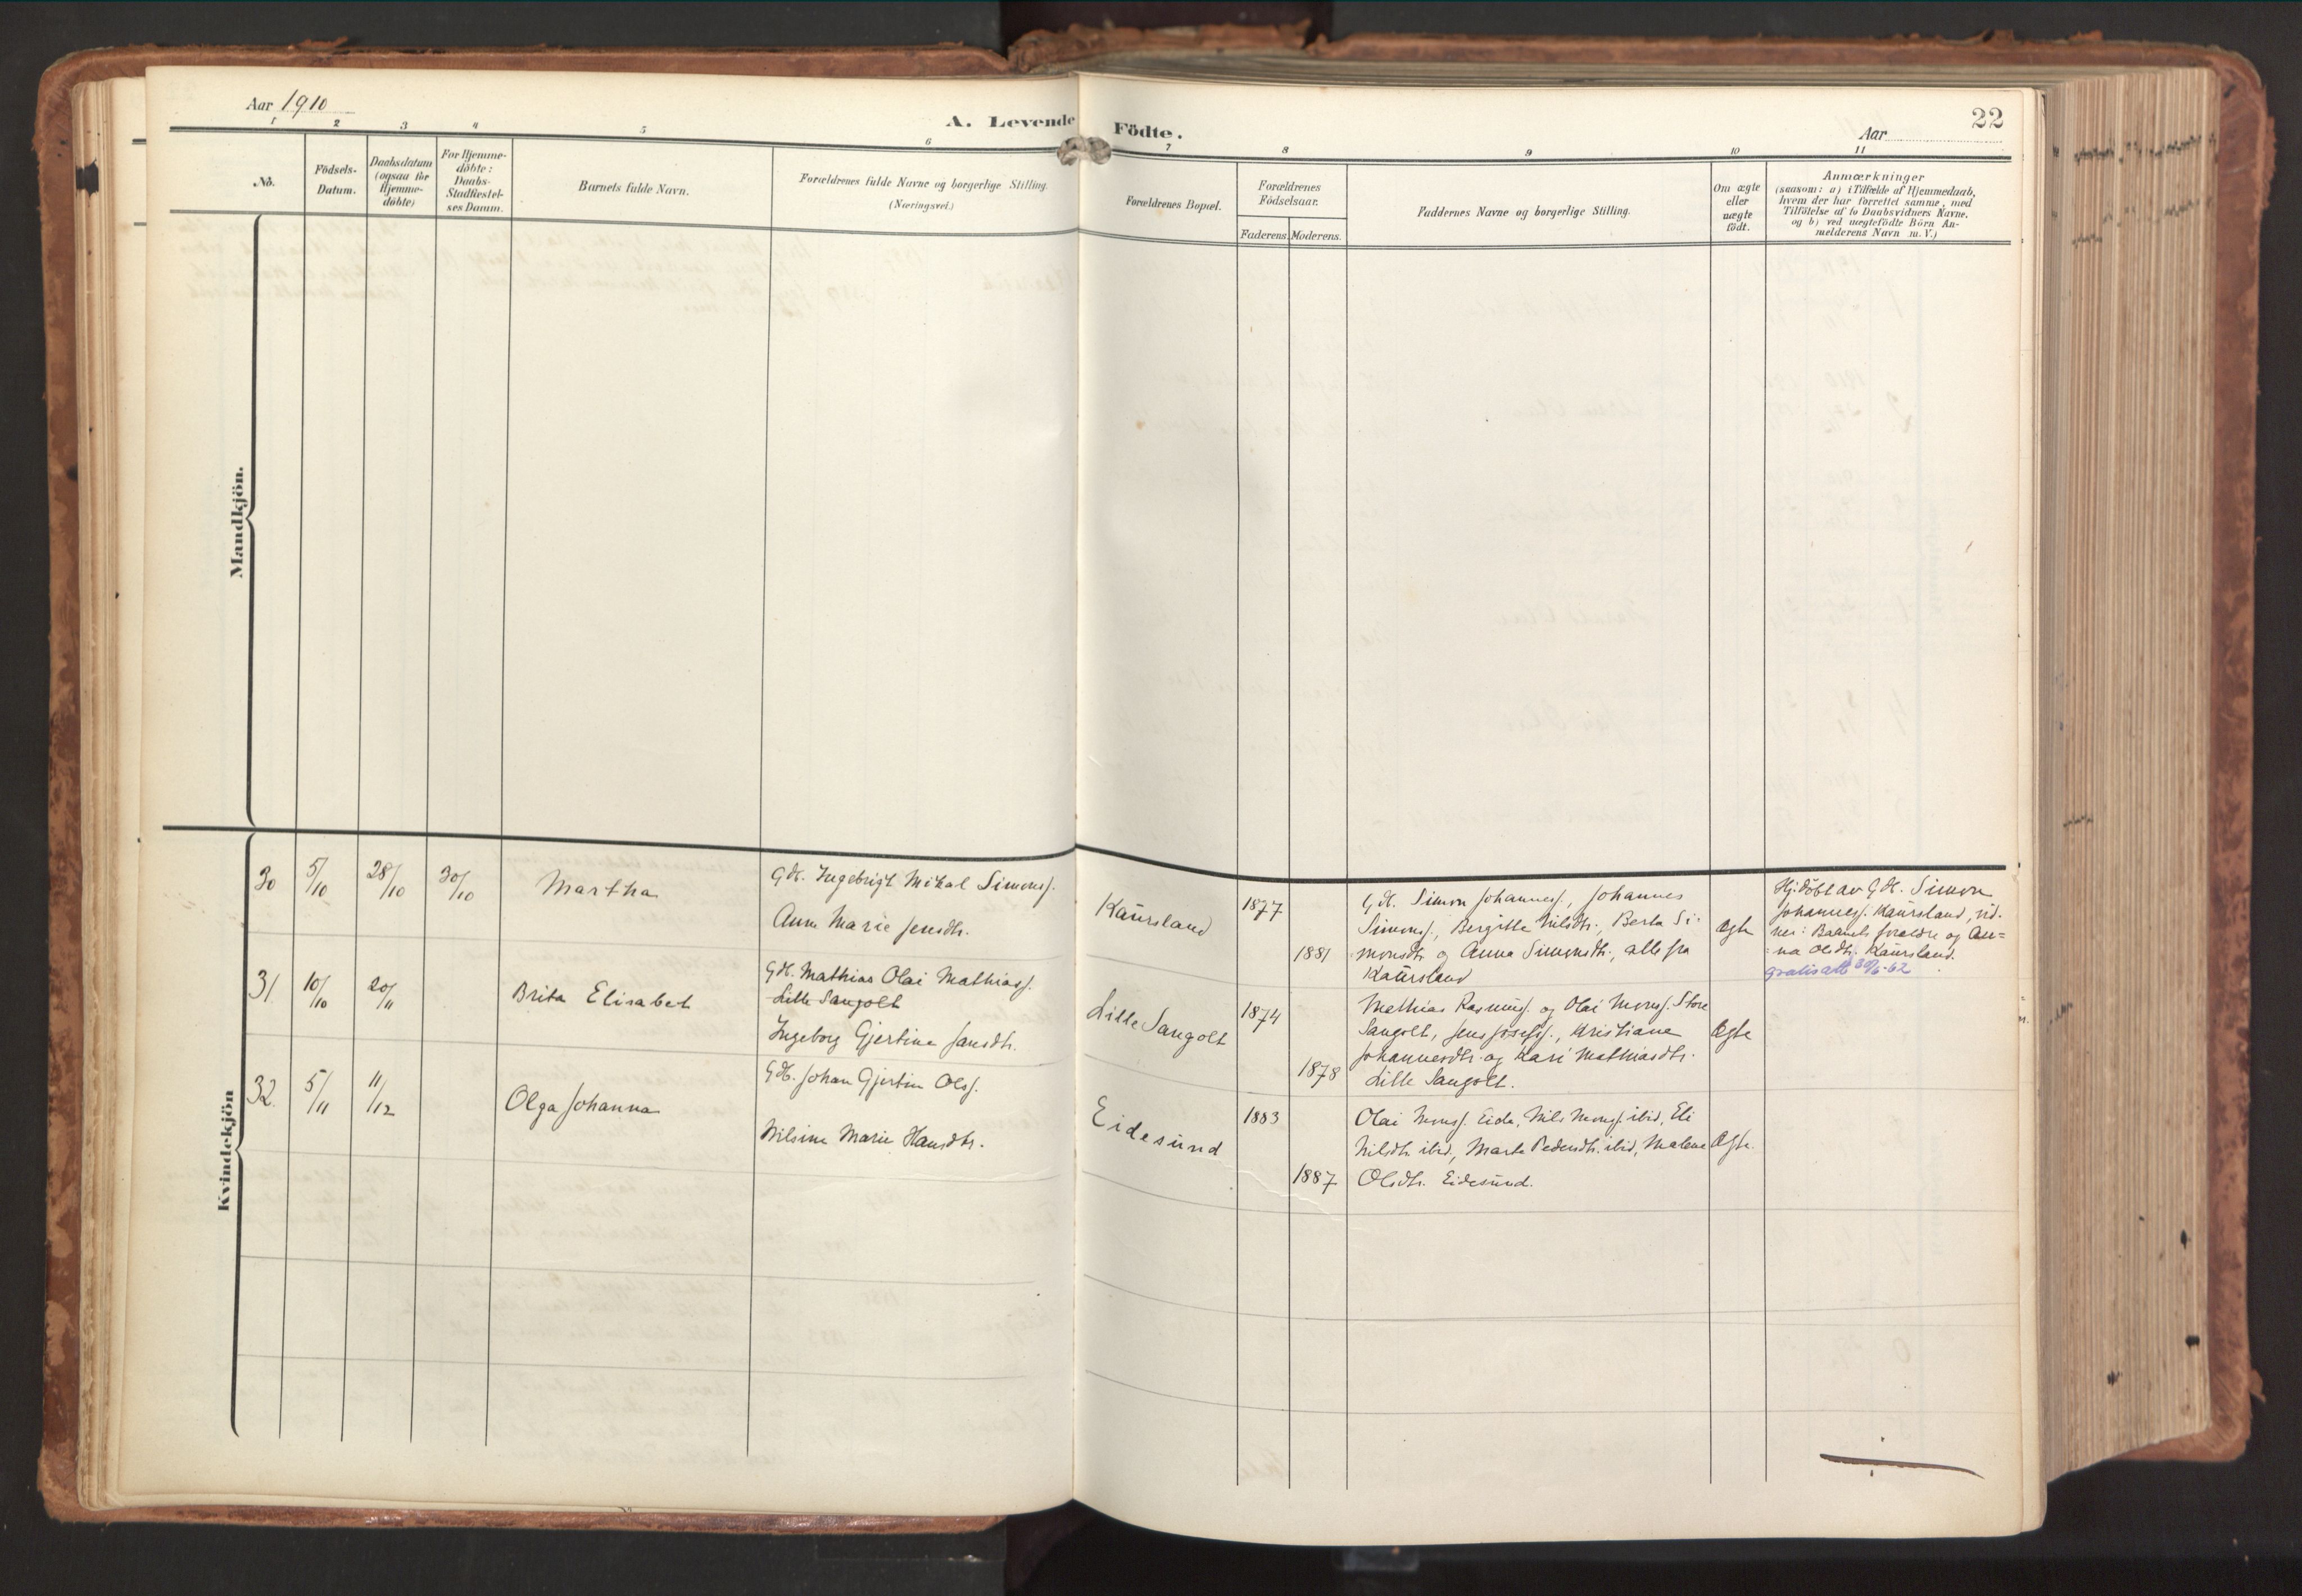 Aar 1910
A. Levende Födte.
Aar
22
1 2 3 4 5 6 7 8 9 10 11
No.
Födsels-
Datum.
Daabsdatum
(ogsaa for
Hjemme-
döbte)
For Hjemme-
döbte:
Daabs-
Stadfæstel-
ses Datum.
Barnets fulde Navn.
Forældrenes fulde Navne og borgerlige Stilling.
(Næringsvei.)
Forældrenes Bopæl.
Forældrenes
Födselsaar.
Faderens. Moderens.
Faddernes Navne og borgerlige Stilling.
Om ægte
eller
uægte
födt.
Anmærkninger
(saasom: a) i Tilfælde af Hjemmedaab,
hvem der har forrettet samme, med
Tilföielse af to Daabsvidners Navne,
og b) ved uægtefödte Börn An-
melderens Navn m. V.)
Mandkjön.
Kvindekjön
30 5/10 28/10 30/10 Martha
Gdk. Ingebrigt Mikal Simonsf.
Anna Marie Jensdtr.
Kaursland
1877
1881
Gdk. Simon Johannesf., Johannes
Simonsf., Bergitte Nilsdtr., Berta Si-
monsdtr. og Anna Simonsdtr., alle fra
Kaursland
Ægte
Hj.döbt av Gdk. Simon
Johannesf. Kaursland, vid-
ner: Barnets foreldre og An=
=na Olsdtr. Kaursland.
gratisatt 62
31 10/10 20/11 Brita Elisabet
Gdk. Mathias Olai Mathiasf.
Lille Sangolt
Ingeborg Gjertine Jansdtr.
Lille Sangolt
1874
1878
Mathias Rasmusf. og Olai Monsf. Store
Sangolt, Jens Josefsf., Kristiane
Johannesdtr. og Kari Mathiasdtr.
Lille Sangolt.
Ægte
32 5/11 11/12 Olga Johanna
Gdk. Johan Gjertin Olsf.
Nilsine Marie Hansdtr.
Eidesund
1883
1887
Olai Monsf. Eide, Nils Monsf. ibid, Eli
Nilsdtr. ibid, Marta Pedersdtr. ibid, Malene
Olsdtr. Eidesund.
Ægte.